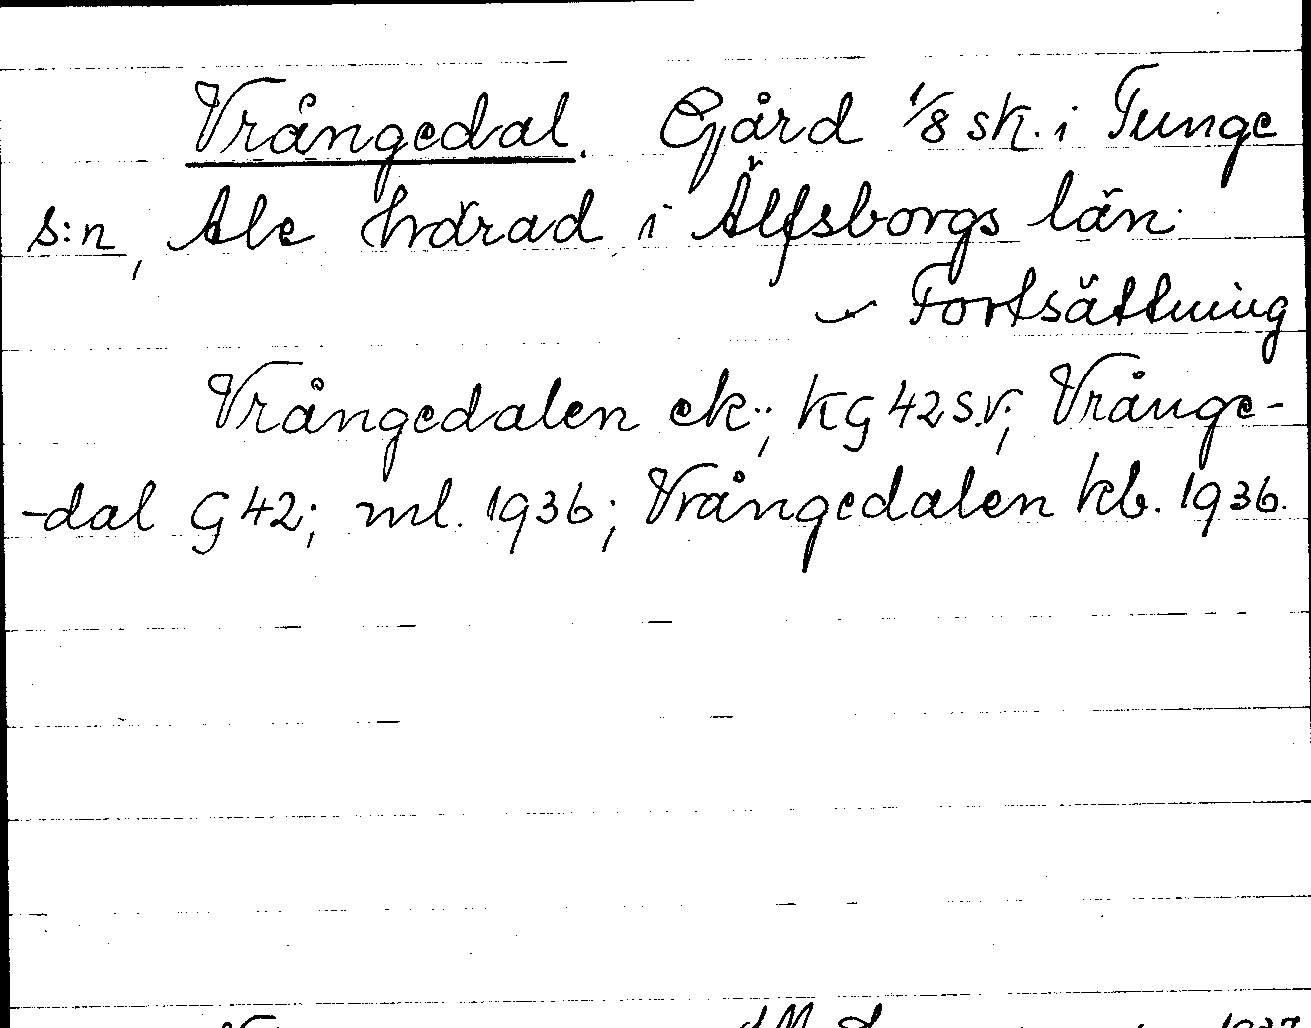 Vrångedal. Gård 1/8 sk. i Tunge
s:n, Ale härad i Älfsborgs län.
Fortsättning
Vrångedalen ek.; KG 42 s.v.; Vrånge-
-dal G 42; ml. 1936; Vrångedalen kb. 1936.
1937